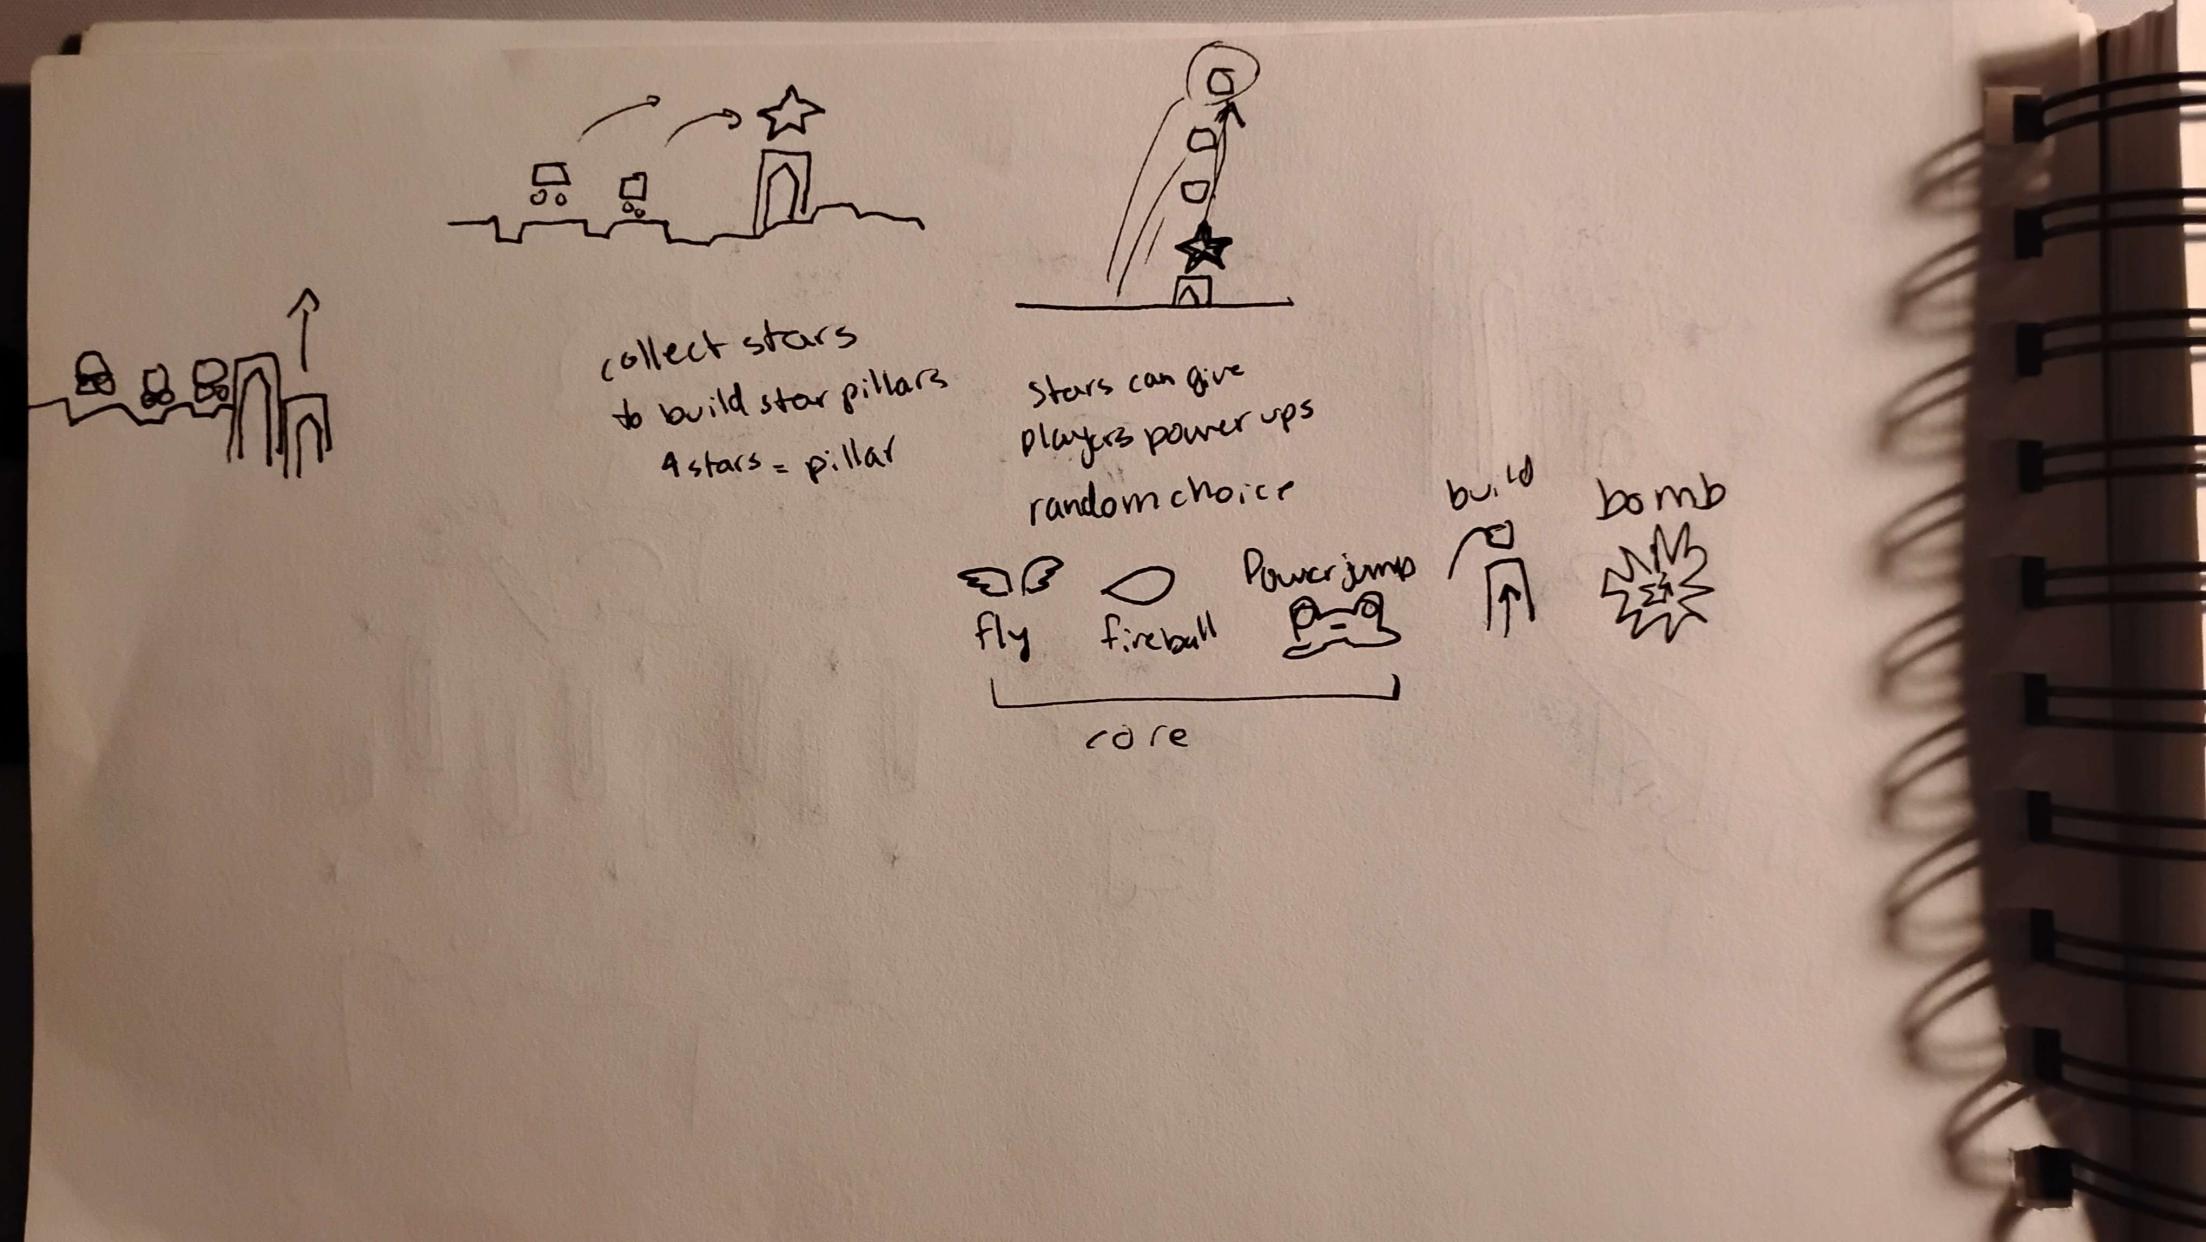 collect stars
to build star pillars
4 stars = pillar
stars can give
players power ups
random choice
fly
fireball
Powerjump
build
bomb
core